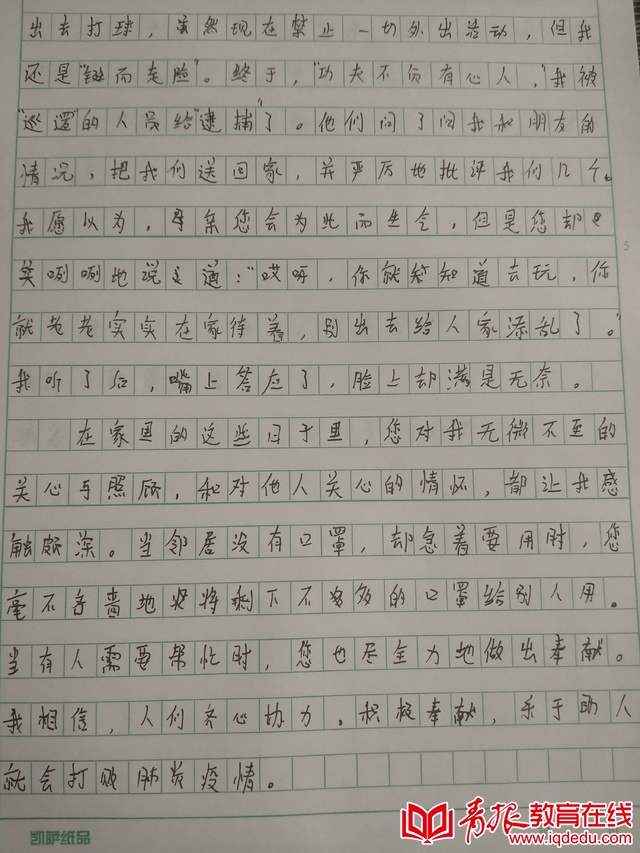 出去打球，虽然现在禁止一切外出活动，但我
还是"铤而走险"。终于，"功夫不负有心人，"我被
"巡逻"的人员给"逮捕"了。他们问了问我和朋友的
情况，把我们送回家，并严厉地批评我们几个。
我愿以为，母亲您会为此而生气，但是您却
笑咧咧地说道："哎呀，你就知道去玩，你
就老老实实在家待着，别出去给人家添乱了。"
我听了后，嘴上答应了，脸上却满是无奈。
在家里的这些日子里，您对我无微不至的
关心与照顾，和对他人关心的情怀，都让我感
触颇深。当邻居没有口罩，却急着要用时，您
毫不吝啬地将剩下不多的口罩给别人用。
当有人需要帮忙时，您也尽全力地做出奉献。
我相信，人们齐心协力，积极奉献，乐于助人
就会打败肺炎疫情。
凯萨纸品
青报教育在线
www.iqdedu.com
5